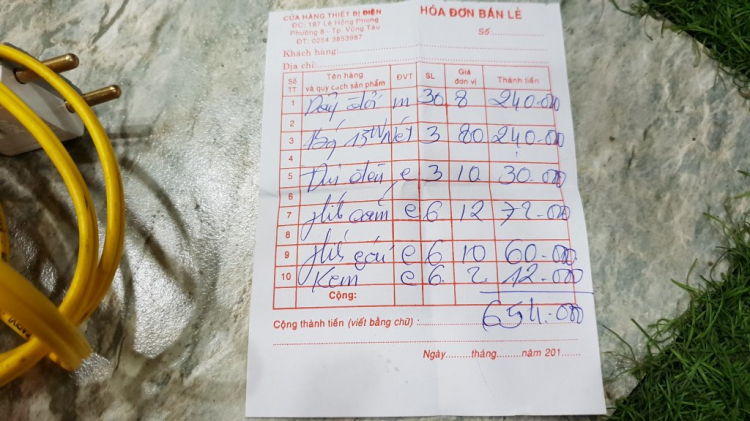 CỬA HÀNG THIẾT BỊ ĐIỆN
HÓA ĐƠN BÁN LẺ
ĐC: 197 Lê Hồng Phong
Phường 8 - Tp. Vũng Tàu
ĐT: 0254 3853987
Số:
Khách hàng:
Địa chỉ:
Số TT Tên hàng và quy cách sản phẩm ĐVT SL Giá đơn vị Thành tiền
1 Dây đôi m 30 8 240.000
2
3 3 80 240.000
4
5 đèn e 3 10 30.000
6
7 cắm e 6 12 72.000
8
9 e 6 10 60.000
10 Kẽm e 6 2 12.000
Cộng:
654.000
Cộng thành tiền (viết bằng chữ) :
Ngày........tháng........năm 201......